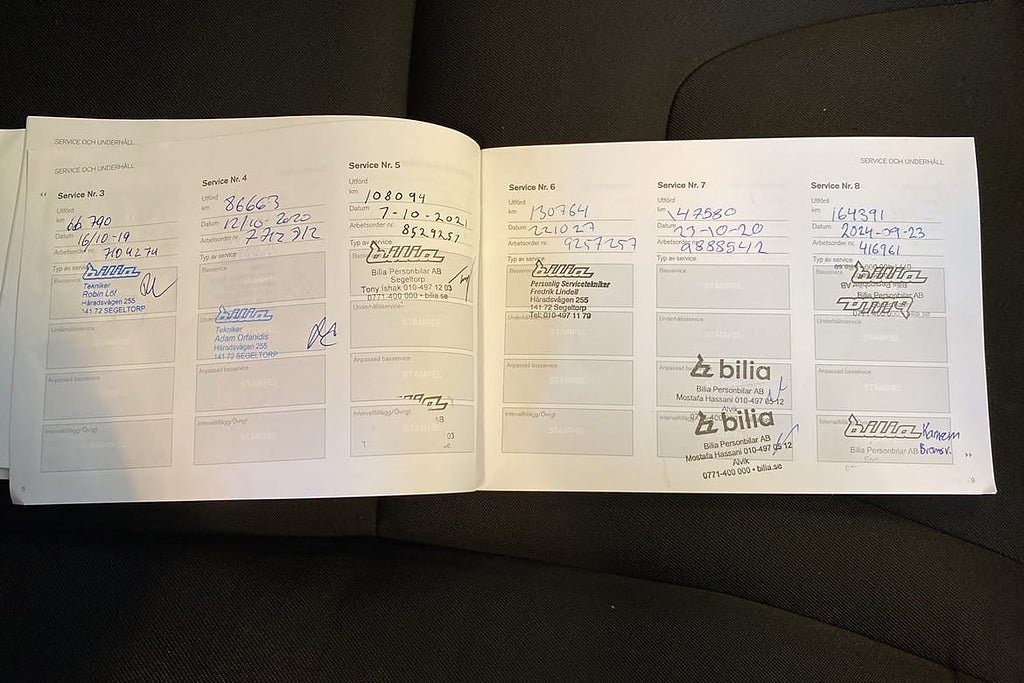 SERVICE OCH UNDERHÅLL
SERVICE OCH UNDERHÅLL
Service Nr. 3
Utförd
km 66 790
Datum 16/10-19
Arbetsorder nr. 7104274
Typ av service
bilia
Tekniker
Robin Löf
Häradsvägen 255
141 72 SEGELTORP
Underhållsservice
Anpassad basservice
Intervalltillägg/Övrigt
8
Service Nr. 4
Utförd
km 86663
Datum 12/10-2020
Arbetsorder nr. 7712912
Typ av service
Basservice
bilia
Tekniker
Adam Orfanidis
Häradsvägen 255
141 72 SEGELTORP
Anpassad basservice
Intervalltillägg/Övrigt
STÄMPEL
Service Nr. 5
Utförd
km 108094
Datum 7-10-2021
Arbetsorder nr. 8529257
bilia
Bilia Personbilar AB
Segeltorp
Tony Ishak 010-497 12 03
0771-400 000 • bilia.se
Underhållsservice
STÄMPEL
Anpassad basservice
STÄMPEL
Intervalltillägg/Övrigt
AB
03
SERVICE OCH UNDERHÅLL
Service Nr. 6
Utförd
km 130764
Datum 221027
Arbetsorder nr. 9257257
Typ av service
bilia
Personlig Servicetekniker
Fredrik Lindell
Häradsvägen 255
141 72 Segeltorp
Tel: 010-497 11 79
Underhållsservice
STÄMPEL
Anpassad basservice
STÄMPEL
Intervalltillägg/Övrigt
STÄMPEL
Service Nr. 7
Utförd
km 147580
Datum 23-10-20
Arbetsorder nr. 9888542
Typ av service
Basservice
STÄMPEL
Underhållsservice
STÄMPEL
Anpassad basservice
bilia
Bilia Personbilar AB
Mostafa Hassani 010-497 05 12
Alvik
bilia
Bilia Personbilar AB
Mostafa Hassani 010-497 05 12
Alvik
0771-400 000 • bilia.se
Service Nr. 8
Utförd
km 164391
Datum 2024-09-23
Arbetsorder nr. 416961
Typ av service
bilia
bilia
Underhållsservice
STÄMPEL
Anpassad basservice
STÄMPEL
bilia
Bilia Personbilar AB
9